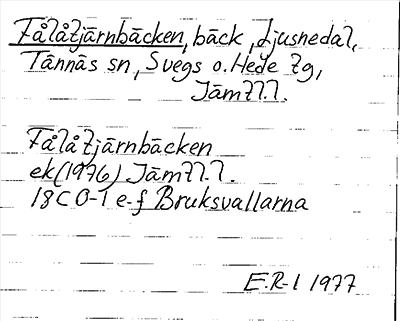 Fålåtjärnbäcken, bäck, Ljusnedal,
Tännäs sn, Svegs o. Hede tg,
Jämtl.
Fålåtjärnbäcken
ek (1976) Jämtl.
18C 0-1 e-f Bruksvallarna
E.R-l 1977